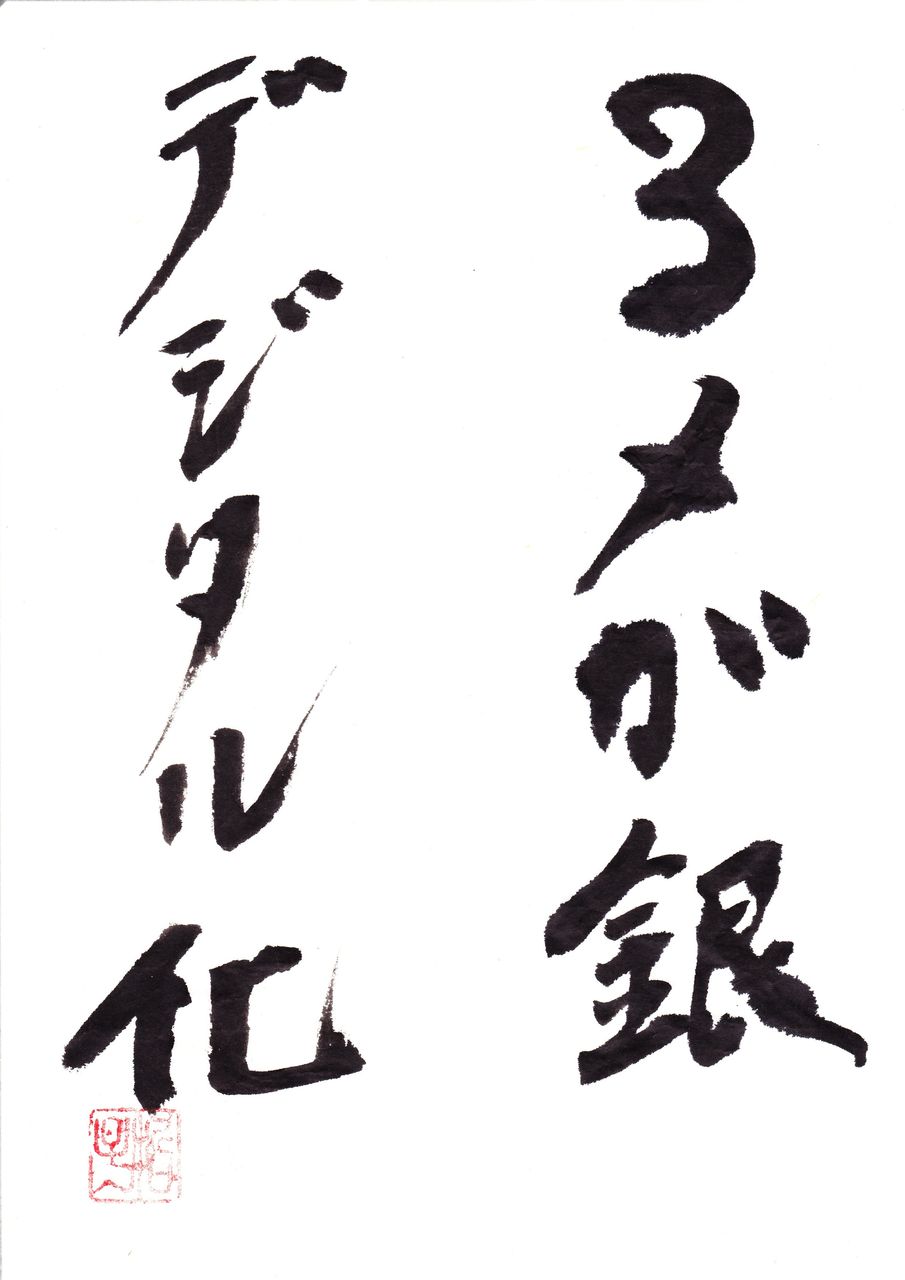 3メガ銀
デジタル化